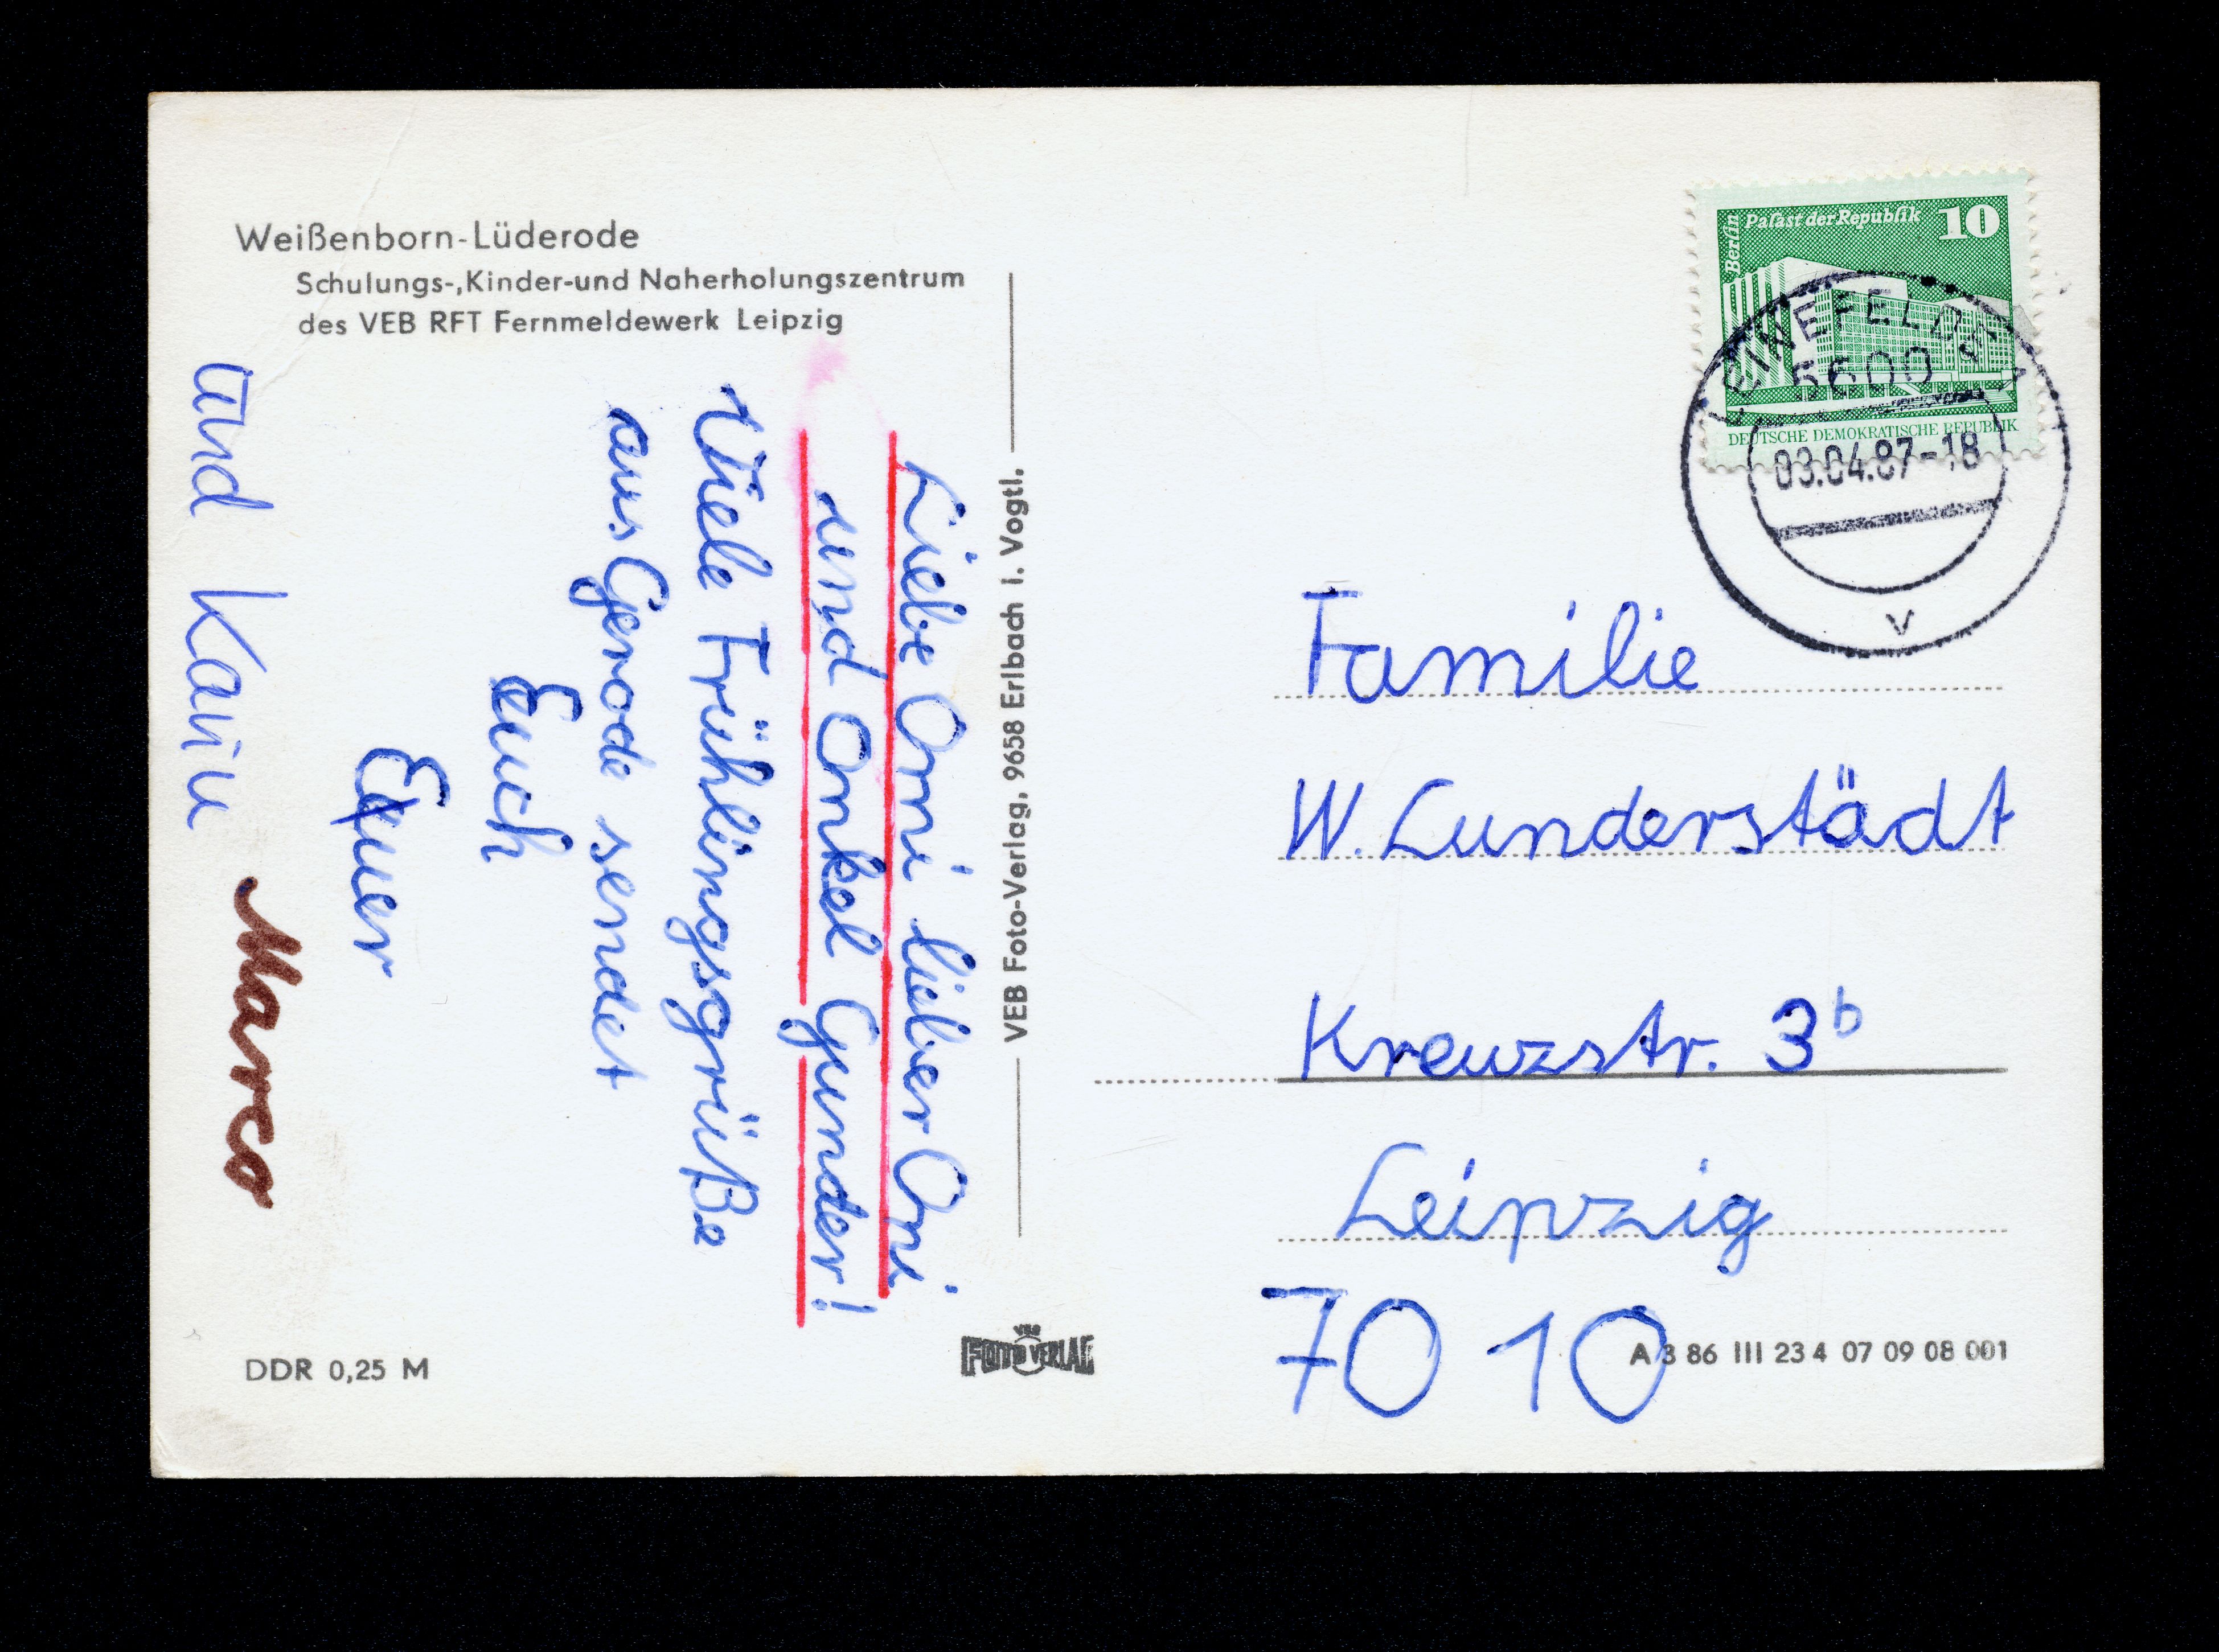 Weißenborn-Lüderode
Schulungs-, Kinder-und Naherholungszentrum
des VEB RFT Fernmeldewerk Leipzig
Liebe Omi lieber Opi
und Onkel Gunder!
Viele Frühlingsgrüße
aus Gerode sendet
Euch
Euer
Marco
und
VEB Foto-Verlag, 9658 Erlbach i. Vogtl.
Berlin
Palast der Republik
10
DEUTSCHE DEMOKRATISCHE REPUBLIK
LEINEFELDE
5600
03.04.87-18
v
Familie
W. Lunderstädt
Kreuzstr. 3b
Leipzig
7010
DDR 0,25 M
VEB
FOTO VERLAG
A 3 86 III 23 4 07 09 08 001